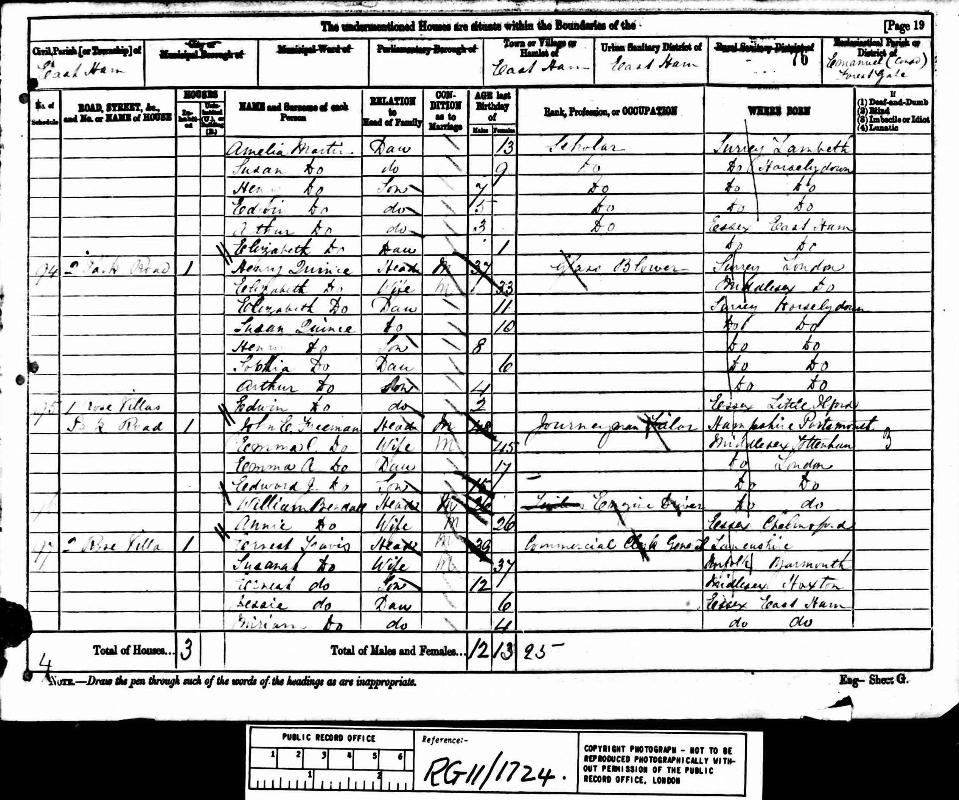 The undermentioned Houses are situate within the Boundaries of the
[Page 19
Civil Parish [or Township] of
East Ham
City or Municipal Borough of
Municipal Ward of
Parliamentary Borough of
Town or Village or Hamlet of
East Ham
Urban Sanitary District of
East Ham
Rural Sanitary District of
76
Ecclesiastical Parish or District of
Emanuel
Forest Gate
No. of Schedule
ROAD, STREET, &c., and No. or NAME of HOUSE
HOUSES
NAME and Surname of each Person
RELATION to Head of Family
CONDITION as to Marriage
AGE last Birthday of
Males Females
Rank, Profession, or OCCUPATION
WHERE BORN
If
(1) Deaf-and-Dumb
(2) Blind
(3) Imbecile or Idiot
(4) Lunatic
Amelia Daur 13 Scholar Surrey Lambeth
Susan Do do 9 Do Do Horselydown
Henry Do Son 7 Do Do Do
Edwin Do do 5 Do Do Do
Arthur Do do 3 Do Essex East Ham
Elizabeth Do Daur 1 Do Do
94 2 Park Road 1 Henry Quince Head M 37 Glass Blower Surrey London
Elizabeth Do Wife M 33 Middlesex Do
Elizabeth Do Daur 11 Surrey Horselydown
Susan Quince Do 10 Do Do
Henry Do Son 8 Do Do
Sophia Do Daur 6 Do Do
Arthur Do Son 4 Do Do
95 1 Rose Villas Edwin Do do 2 Essex Little Ilford
Park Road 1 John C Freeman Head M 48 Journeyman Tailor Hampshire Portsmouth
Emma Do Wife M 45 Middlesex Tottenham
Emma A Do Daur 17 Do London
Edward J. Do Son 15 Do Do
William Head M Engine Driver Do do
Annie Do Wife M 26 Essex Chelmsford
97 2 Rose Villa 1 Ernest Head M 39 Commercial Clerk Lancashire
Susanah Do Wife M 37 Norfolk Yarmouth
do Son 12 Middlesex Hoxton
Jessie do Daur 6 Essex East Ham
Miriam Do do 4 do do
4
Total of Houses... 3
Total of Males and Females... 12 13 25
NOTE.—Draw the pen through such of the words of the headings as are inappropriate.
Eng—Sheet G.
PUBLIC RECORD OFFICE
1 2 3 4 5 6
1 2
Reference:-
RG 11/1724.
COPYRIGHT PHOTOGRAPH - NOT TO BE
REPRODUCED PHOTOGRAPHICALLY WITH-
OUT PERMISSION OF THE PUBLIC
RECORD OFFICE, LONDON